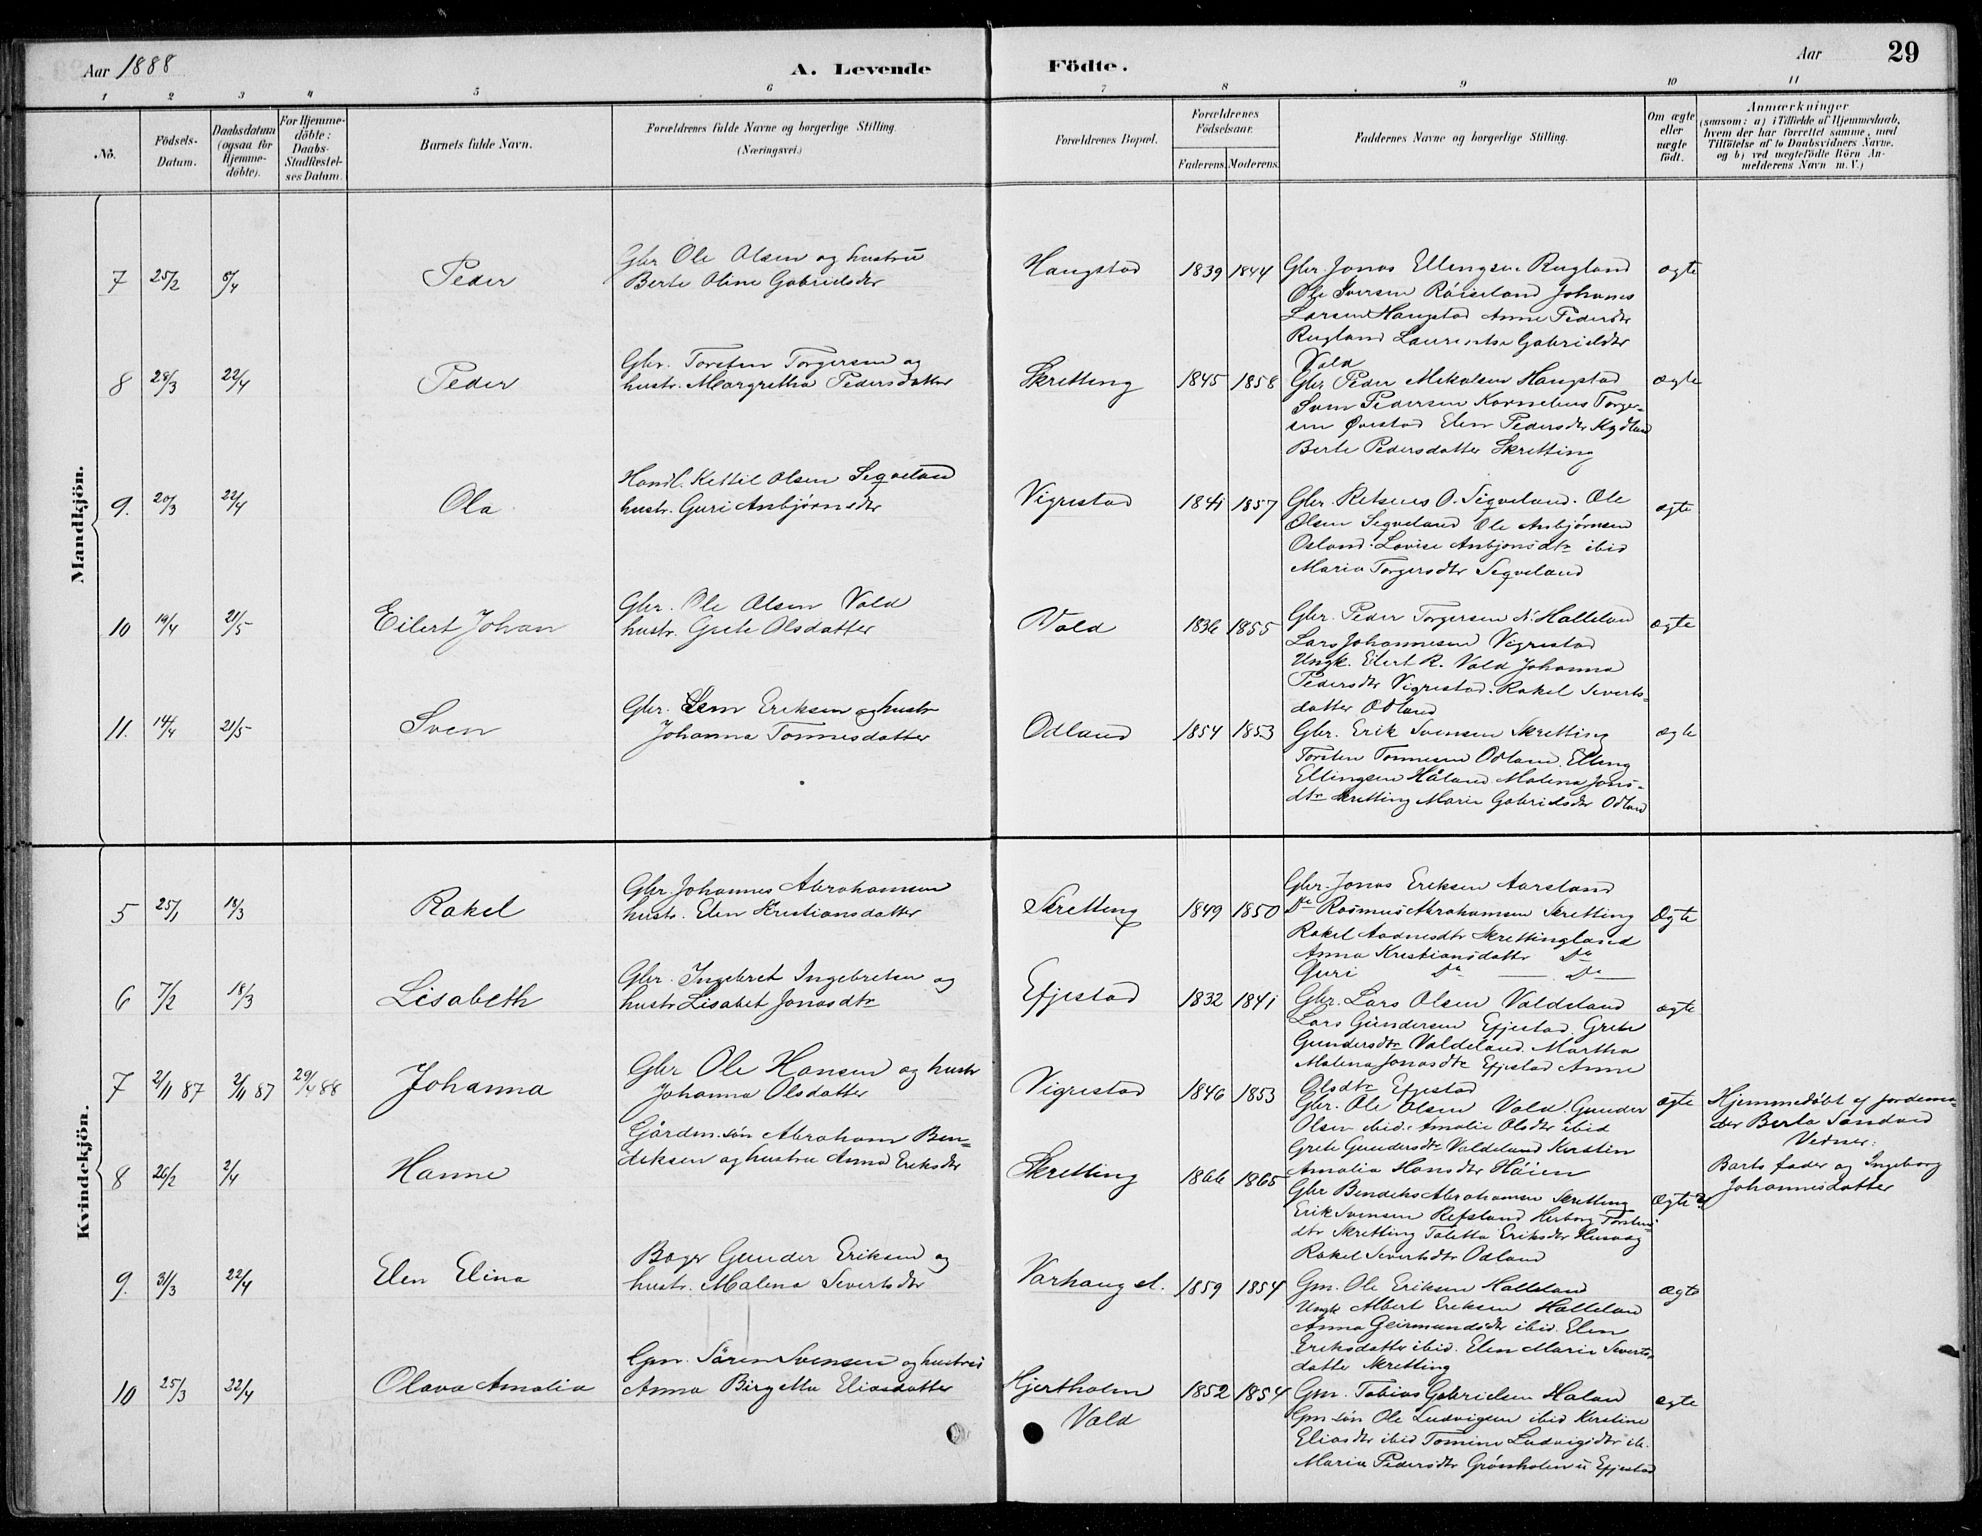 Aar 1888
A. Levende Födte.
Aar
29
1 2 3 4 5 6 7 8 9 10 11
No.
Födsels-Datum.
Daabsdatum (ogsaa for Hjemme-döbte).
For Hjemme-döbte: Daabs-Stadfæstel-ses Datum.
Barnets fulde Navn.
Forældrenes fulde Navne og borgerlige Stilling. (Næringsvei.)
Forældrenes Bopæl.
Forældrenes Födselsaar.
Faderens. Moderens.
Faddernes Navne og borgerlige Stilling.
Om ægte eller uægte födt.
Anmærkninger
(saasom: a) i Tilfælde af Hjemmedaab,
hvem der har forrettet samme, med
Tilföielse af to Daabsvidners Navne.
og b) ved uægtefödte Börn An-
melderens Navn m. V.)
Mandkjön.
7 25/2 Peder
Gbr Ole Olsen og hustru
Berte Oline Gabrielsdtr
Haugstad 1839 1844
Gbr. Jonas Ellengsen Rugland
Ole Iversen Röiseland Johanes
Larsen Haugstad Anne Pedersdtr
Rugland Laurentse Gabrielsdtr
Vold
ægte
8 28/3 22/4 Peder
Gbr. Torsten Torgersen og
hustr. Margretha Pedersdatter
Skretting 1845 1858
Gbr Peder Mikalsen Haugstad
Sven Pedersen Kornelius Torger-
sen Øvestad Elen Pedersdtr Kydland
Berte Pedersdatter Skretting
ægte
9. 20/3 22/4 Ola
Handl. Kettil Olsen Seqveland
hustr. Guri Asbjørnsdtr
Vigrestad 1841 1857
Gbr. O. Siqveland. Ole
Olsen Seqveland Ole Asbjørnsen
Osland. Lovise Asbjonsdtr ibid
Maria Torgersdtr Seqveland
ægte
10 19/4 21/5 Eilert Johan
Gbr. Ole Olsen Vold
hustr. Grete Olsdatter
Vold 1836 1855
Gbr. Peder Torgersen N. Halleland
Lars Johannesen Vigrestad
Ungk. Eilert R. Vold Johanna
Pedersdtr Vigrestad. Rakel Severts-
datter Odland
ægte
11. 14/4 21/5 Sven
Gbr. Sven Eriksen og hustr
Johanna Tonnesdatter
Odland 1854 1853
Gbr. Erik Svensen Skretting
Torsten Tonnesen Odland. Elling
Ellingsen Håland Malena Jons-
dtr Skretting Marie Gabrielsdtr Odland
ægte
Kvindekjön.
5 25/1 18/3 Rakel
Gbr. Johannes Abrahamsen
hustr. Elen Kristiansdatter
Skretting 1849 1850
Gbr. Jonas Eriksen Aarsland
Do Rasmus Abrahamsen Skretting
Rakel Aadnesdtr Skrettingland
Anna Kristiansdatter Do
Guri Do — Do —
Ægte
6 7/2 18/3 Lisabeth
Gbr. Ingebret Ingebretsen og
hustr Lisabet Jonasdtr
Efjestad 1832 1841
Gbr. Lars Olsen Valdeland
Lars Gundersen Efjestad. Grete
Gundersdtr Valdeland. Martha
Malena Jonasdtr Efjestad Anne
Olsdtr Efjestad
ægte
7 2/11 87 2/11 87 29/4 88 Johanna
Gbr Ole Hansen og hustr
Johanna Olsdatter
Vigrestad 1846 1853
Gbr. Ole Olsen Vold. Gunder
Olsen ibid. Amalie Olsdtr ibid
Grete Gundersdtr Valdeland Kirstin
Amalia Hansdtr Höien
ægte
Hjemmedöbt af Jordemo-
der Berta Sandved
Vidner:
Barts fader og Ingeborg
Johannesdatter
8 26/2 2/4 Hanne
Gården. sön Abraham Ben-
diksen og hustru Anna Eriksdtr
Skretting 1866 1865
Gbr Bendiks Abrahamsen Skretting
Erik Svensen Refsland Herborg Torstens-
dtr Skretting Taletta Eriksdtr
Rakel Severtsdtr Odland
Ægte
9. 31/3 22/4 Elen Elina
Bager Gunder Eriksen og
hustr. Malena Severtsdtr
Varhaug st. 1859 1854
Gm. Ole Eriksen Halleland
Ungk Albert Eriksen Halleland
Anna Geirmundsdtr ibid. Elen
Eriksdatter ibid. Elen Marie Severts-
datter Skretting
ægte
10 25/3 22/4 Olava Amalia
Gm. Sören Svensen og hustru
Anna Birgitta Eliasdatter
Hjertholm
Vold
1852 1854
Gm. Tobias Gabrielsen Haland
Gm sön Ole Ludvigsen ibid Kirstine
Eliasdtr ibid Tomine Ludvigsdtr ib.
Maria Pedersdtr Efjestad
ægte